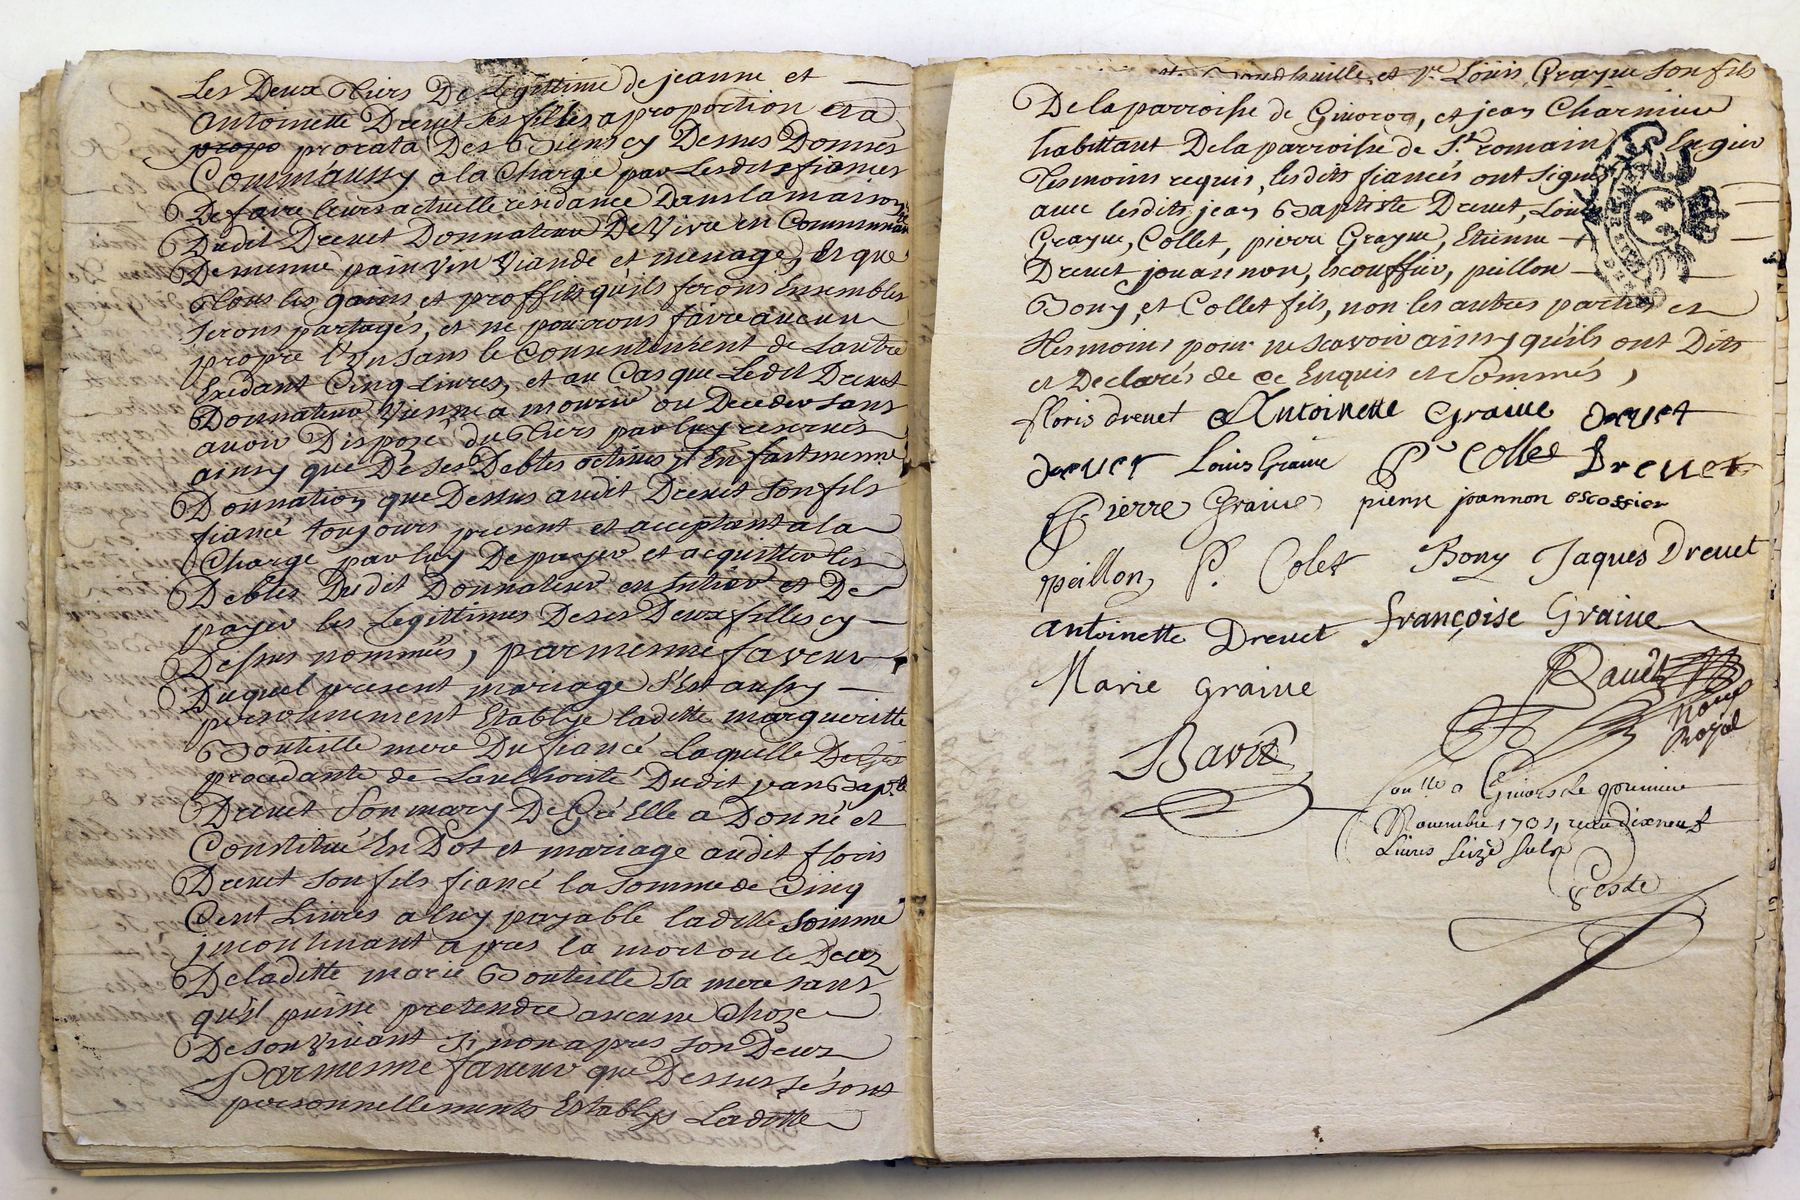 Les Deux tiers De Legittime de jeanne et
Antoinette Drevet ses filles a proportion et a
propo prorata Des Biens cy Dessus Donnés
Commauny a la Charge par Lesdits fiancés
De faire leurs actuelle residance Dans la maison
Dudit Drevet Donnateur De Vivre en Communion
De mesme pain vin viande et menage, Et que
tous les gains et proffits quils ferons Ensembles
Serons partagés, et ne pourrons faire aucun
propre l'Un sans le Consentement de Lautre
Exedant Cinq Livres, et au Cas que Ledit Drevet
Donnateur Vienne a mourir ou Deceder sans
avoir Disposé du tiers par luy reservés
ainsy que De ses Debtes actives, il En fait mesme
Donnation que Dessus audit Drevet Son fils
fiancé toujours present et acceptant a la
Charge par luy De payer et acquitter les
Debtes Dudit Donnateur en Entier et De
payer les Legittimes De ses Deux filles cy
Dessus nommées, par mesme faveur
Duquel present mariage S'Est aussy
personnement Establye laditte margueritte
Bouteille mere Du fiancé Laquelle De
procedante de Lauthorité Dudit jean Bapte
Drevet Son mary De Gré Elle a Donné et
Constitué En Dot et mariage audit floris
Drevet Son fils fiancé la Somme de Cinq
Cent Livres a luy payable laditte Somme
jncontinant apres la mort ou le Deces
De laditte marie Bouteille Sa mere sans
qu'il puisse pretendre aucune Chose
De son vivant Si non apres son Deces
Par mesme faveur que Dessus se sont
personnellements Establys Laditte
et Sr Louis Grayue Son fils
De la parroisse de Givors, et jean Charmieu
habittant De la parroisse de St romain En gier
tesmoins requis, lesdits fiancés ont Signés
avec lesdits jean Baptiste Drevet, Louis
Grayue, Collet, pierre Grayue, Etienne
Drevet jouannon, Escouffier, peillon
Bony, et Collet fils, non les autres parties et
tesmoins pour ne Scavoir ainsy quils ont Dits
et Declarés de ce Enquis et Sommés,
floris drevet Antoinette Graiue drevet
drevet Louis Graiue P Collet Drevet
Pierre Graiue pierre joannon escoffier
peillon P. Colet Bony Jaques Drevet
antoinette Drevet françoise Graiue
Marie Graiue
Bavet
Nore
Royal
Bavet
a Givors Le premier
Novembre 1701, receu dixneuf
Livres Seize Sols